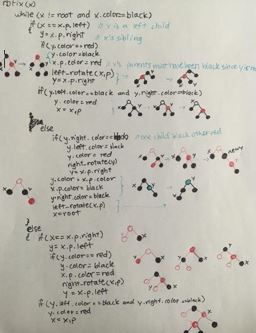 rbfix(x)
while (x != root and x.color==black)
if (x == x.p.left) // x is a left child
y = x.p.right // x's sibling
if (y.color==red)
y.color=black
x.p.color=red // x's parents must have been black since y is red
left_rotate(x,p)
y=x.p.right
if (y.left.color==black and y.right.color==black)
y.color=red
x=x.p
else
if (y.right.color== // one child black other red
y.left.color=black
y.color=red
right_rotate(y)
y=x.p.right
y.color=x.p.color
x.p.color=black
y.right.color=black
left_rotate(x,p)
x=root
else
if (x==x.p.right)
y=x.p.left
if (y.color==red)
y.color=black
x.p.color=red
right_rotate(x,p)
y=x.p.left
if (y.left.color==black and y.right.color==black)
y.color=red
x=x.p